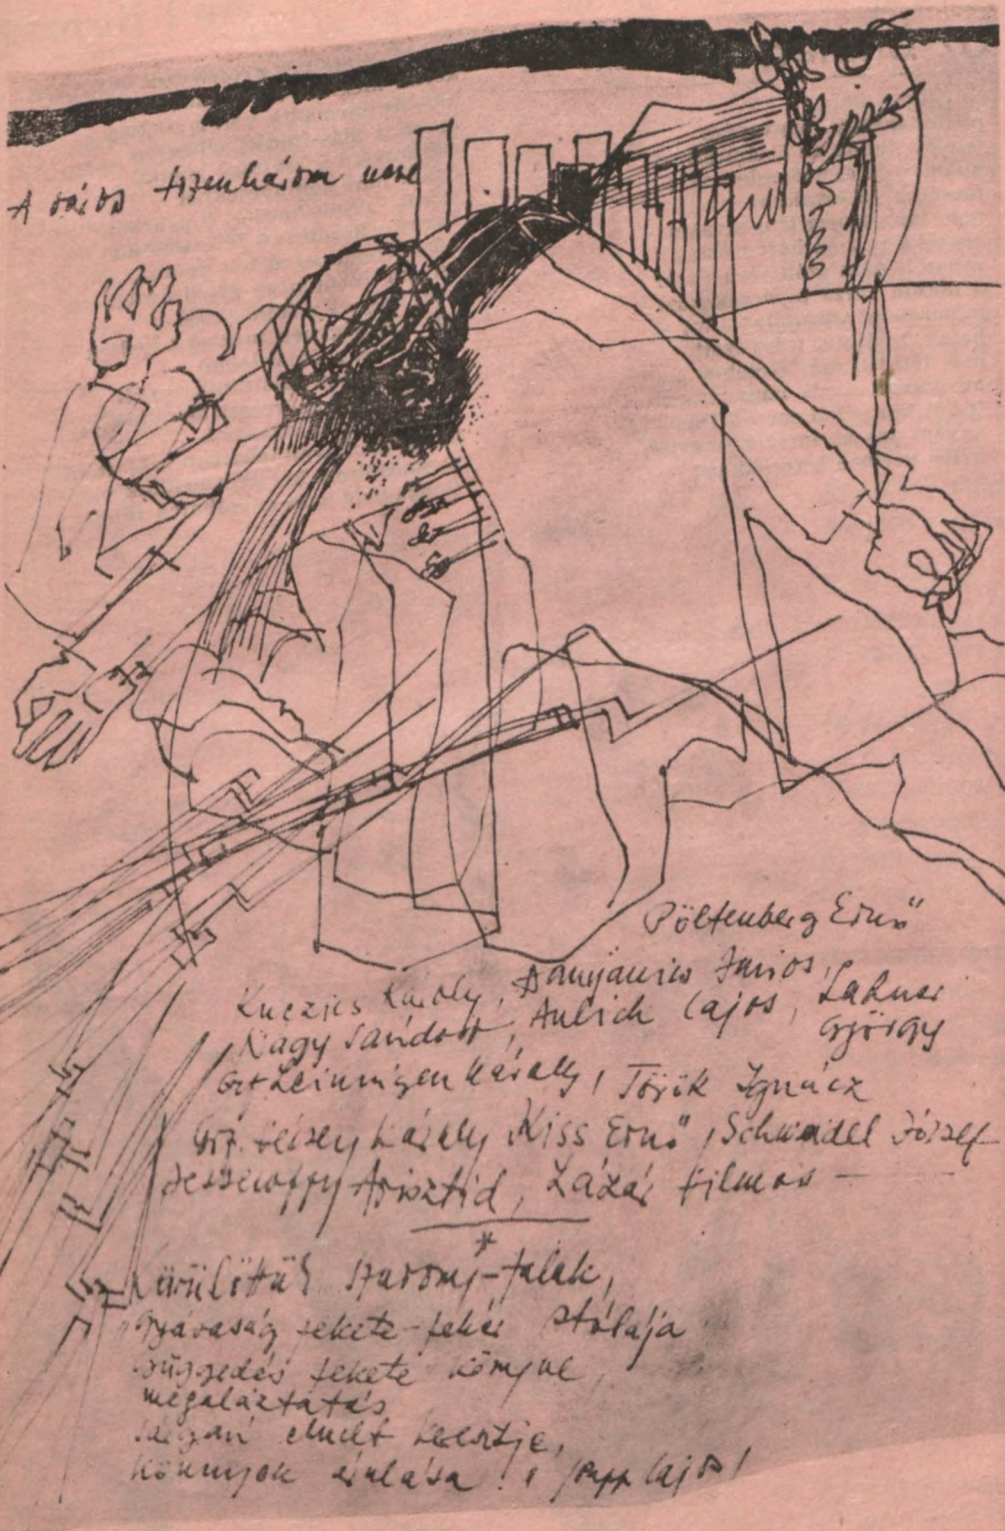 A város tizenhárom neve
Pöltenberg Ernő
Knezics Károly, Damjanich János,
Nagy Sándor, Aulich Lajos, Lahner
György
Gr. Leiningen Károly, Török Ignácz
Gr. Vécsey Károly Kiss Ernő, Schweidel József
Dessewffy Arisztid, Lázár Vilmos –
*
Körülöttük szurony-falak,
gyávaság fekete-fehér stólája
csüggedés fekete könyve,
megaláztatás
emelt keresztje,
könnyek árulása! /Papp Lajos/